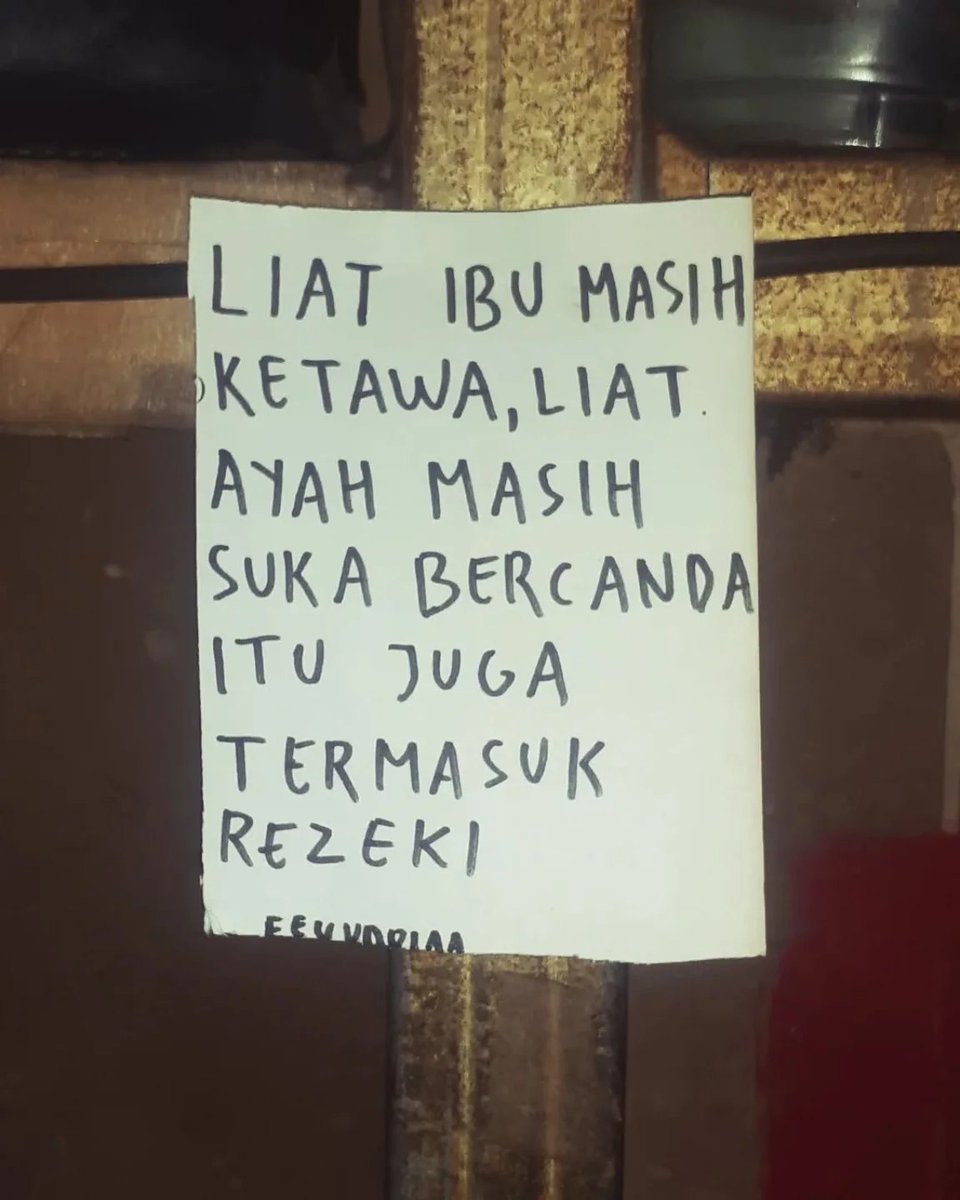 LIAT IBU MASIH
KETAWA, LIAT.
AYAH MASIH
SUKA BERCANDA
ITU JUGA
TERMASUK
REZEKI